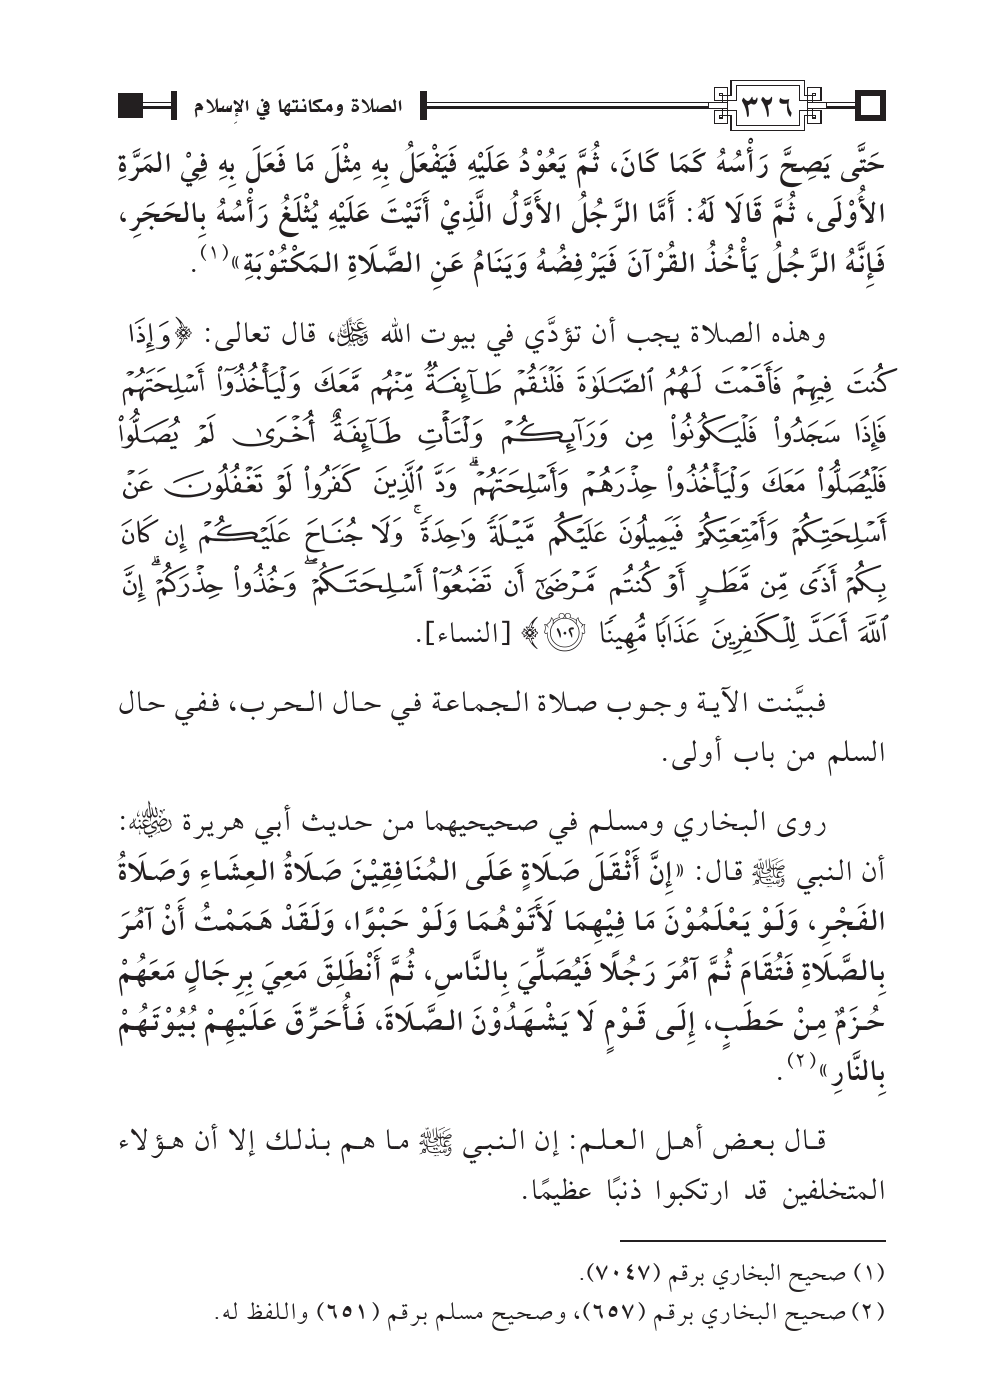 ٣٢٦ الصلاة ومكانتها في الإسلام
حَتَّى يَصِحَّ رَأْسُهُ كَمَا كَانَ، ثُمَّ يَعُوْدُ عَلَيْهِ فَيَفْعَلُ بِهِ مِثْلَ مَا فَعَلَ بِهِ فِيْ المَرَّةِ
الأُوْلَى، ثُمَّ قَالَا لَهُ: أَمَّا الرَّجُلُ الأَوَّلُ الَّذِيْ أَتَيْتَ عَلَيْهِ يُثْلَغُ رَأْسُهُ بِالحَجَرِ،
فَإِنَّهُ الرَّجُلُ يَأْخُذُ القُرْآنَ فَيَرْفِضُهُ وَيَنَامُ عَنِ الصَّلَاةِ المَكْتُوْبَةِ»(١).
وهذه الصلاة يجب أن تؤدَّي في بيوت الله ﷻ، قال تعالى: ﴿وَإِذَا
كُنتَ فِيهِمْ فَأَقَمْتَ لَهُمُ ٱلصَّلَوٰةَ فَلْتَقُمْ طَآئِفَةٌ مِّنْهُم مَّعَكَ وَلْيَأْخُذُوٓا۟ أَسْلِحَتَهُمْ
فَإِذَا سَجَدُوا۟ فَلْيَكُونُوا۟ مِن وَرَآئِكُمْ وَلْتَأْتِ طَآئِفَةٌ أُخْرَىٰ لَمْ يُصَلُّوا۟
فَلْيُصَلُّوا۟ مَعَكَ وَلْيَأْخُذُوا۟ حِذْرَهُمْ وَأَسْلِحَتَهُمْ ۗ وَدَّ ٱلَّذِينَ كَفَرُوا۟ لَوْ تَغْفُلُونَ عَنْ
أَسْلِحَتِكُمْ وَأَمْتِعَتِكُمْ فَيَمِيلُونَ عَلَيْكُم مَّيْلَةً وَٰحِدَةً ۚ وَلَا جُنَاحَ عَلَيْكُمْ إِن كَانَ
بِكُمْ أَذًى مِّن مَّطَرٍ أَوْ كُنتُم مَّرْضَىٰٓ أَن تَضَعُوٓا۟ أَسْلِحَتَكُمْ ۖ وَخُذُوا۟ حِذْرَكُمْ ۗ إِنَّ
ٱللَّهَ أَعَدَّ لِلْكَٰفِرِينَ عَذَابًا مُّهِينًا ١٠٢﴾ [النساء].
فبيَّنت الآية وجوب صلاة الجماعة في حال الحرب، ففي حال
السلم من باب أولى.
روى البخاري ومسلم في صحيحيهما من حديث أبي هريرة رضي الله عنه:
أن النبي ﷺ قال: «إِنَّ أَثْقَلَ صَلَاةٍ عَلَى المُنَافِقِيْنَ صَلَاةُ العِشَاءِ وَصَلَاةُ
الفَجْرِ، وَلَوْ يَعْلَمُوْنَ مَا فِيْهِمَا لَأَتَوْهُمَا وَلَوْ حَبْوًا، وَلَقَدْ هَمَمْتُ أَنْ آمُرَ
بِالصَّلَاةِ فَتُقَامَ ثُمَّ آمُرَ رَجُلًا فَيُصَلِّيَ بِالنَّاسِ، ثُمَّ أَنْطَلِقَ مَعِيَ بِرِجَالٍ مَعَهُمْ
حُزَمٌ مِنْ حَطَبٍ، إِلَى قَوْمٍ لَا يَشْهَدُوْنَ الصَّلَاةَ، فَأُحَرِّقَ عَلَيْهِمْ بُيُوْتَهُمْ
بِالنَّارِ»(٢).
قال بعض أهل العلم: إن النبي ﷺ ما هم بذلك إلا أن هؤلاء
المتخلفين قد ارتكبوا ذنبًا عظيمًا.
(١) صحيح البخاري برقم (٧٠٤٧).
(٢) صحيح البخاري برقم (٦٥٧)، وصحيح مسلم برقم (٦٥١) واللفظ له.